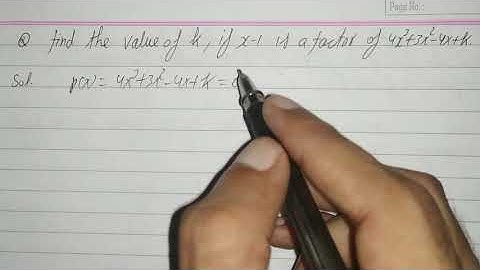 Page No.:
Q find the value of k, if x-1 is a factor of 4x³+3x²-4x+k.
Sol. p(x) = 4x³+3x²-4x+k =